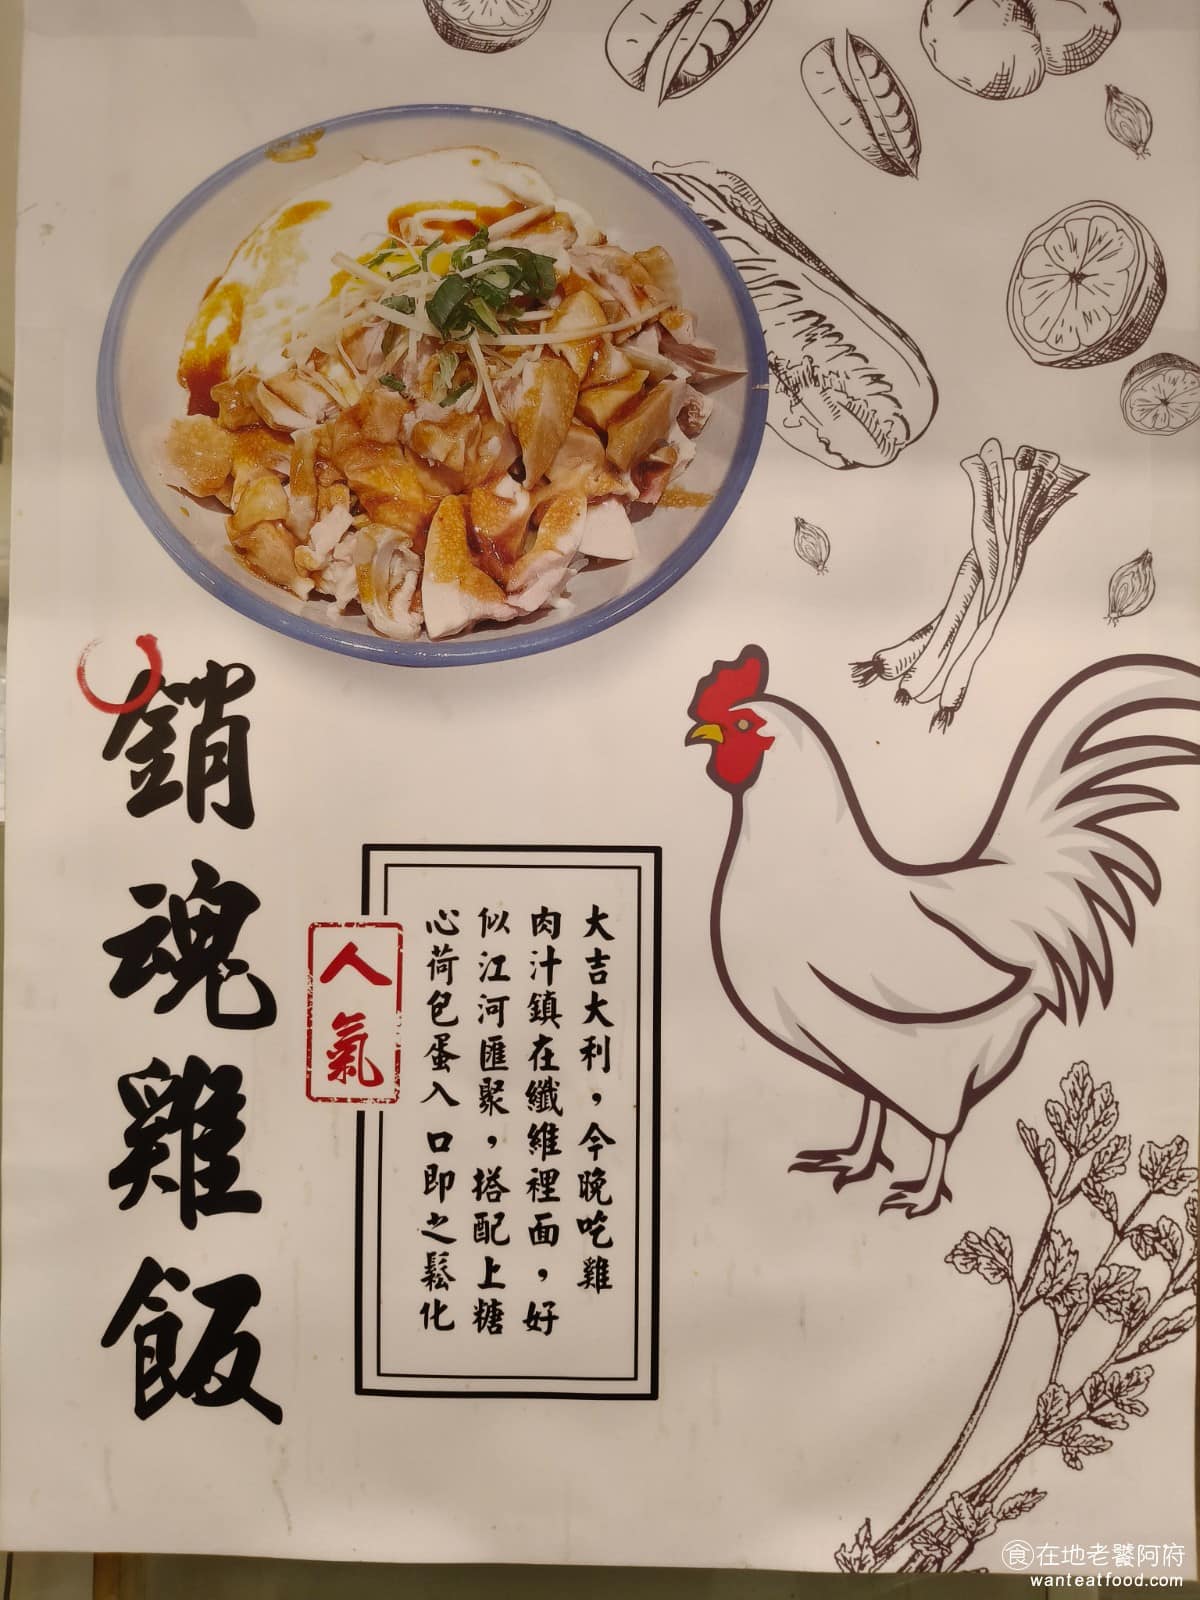 大吉大利，今晚吃雞
肉汁鎮在纖維裡面，好
似江河匯聚，搭配上糖
心荷包蛋入口即之鬆化
人氣
銷魂雞飯
食在地老饕阿府
wanteatfood.com